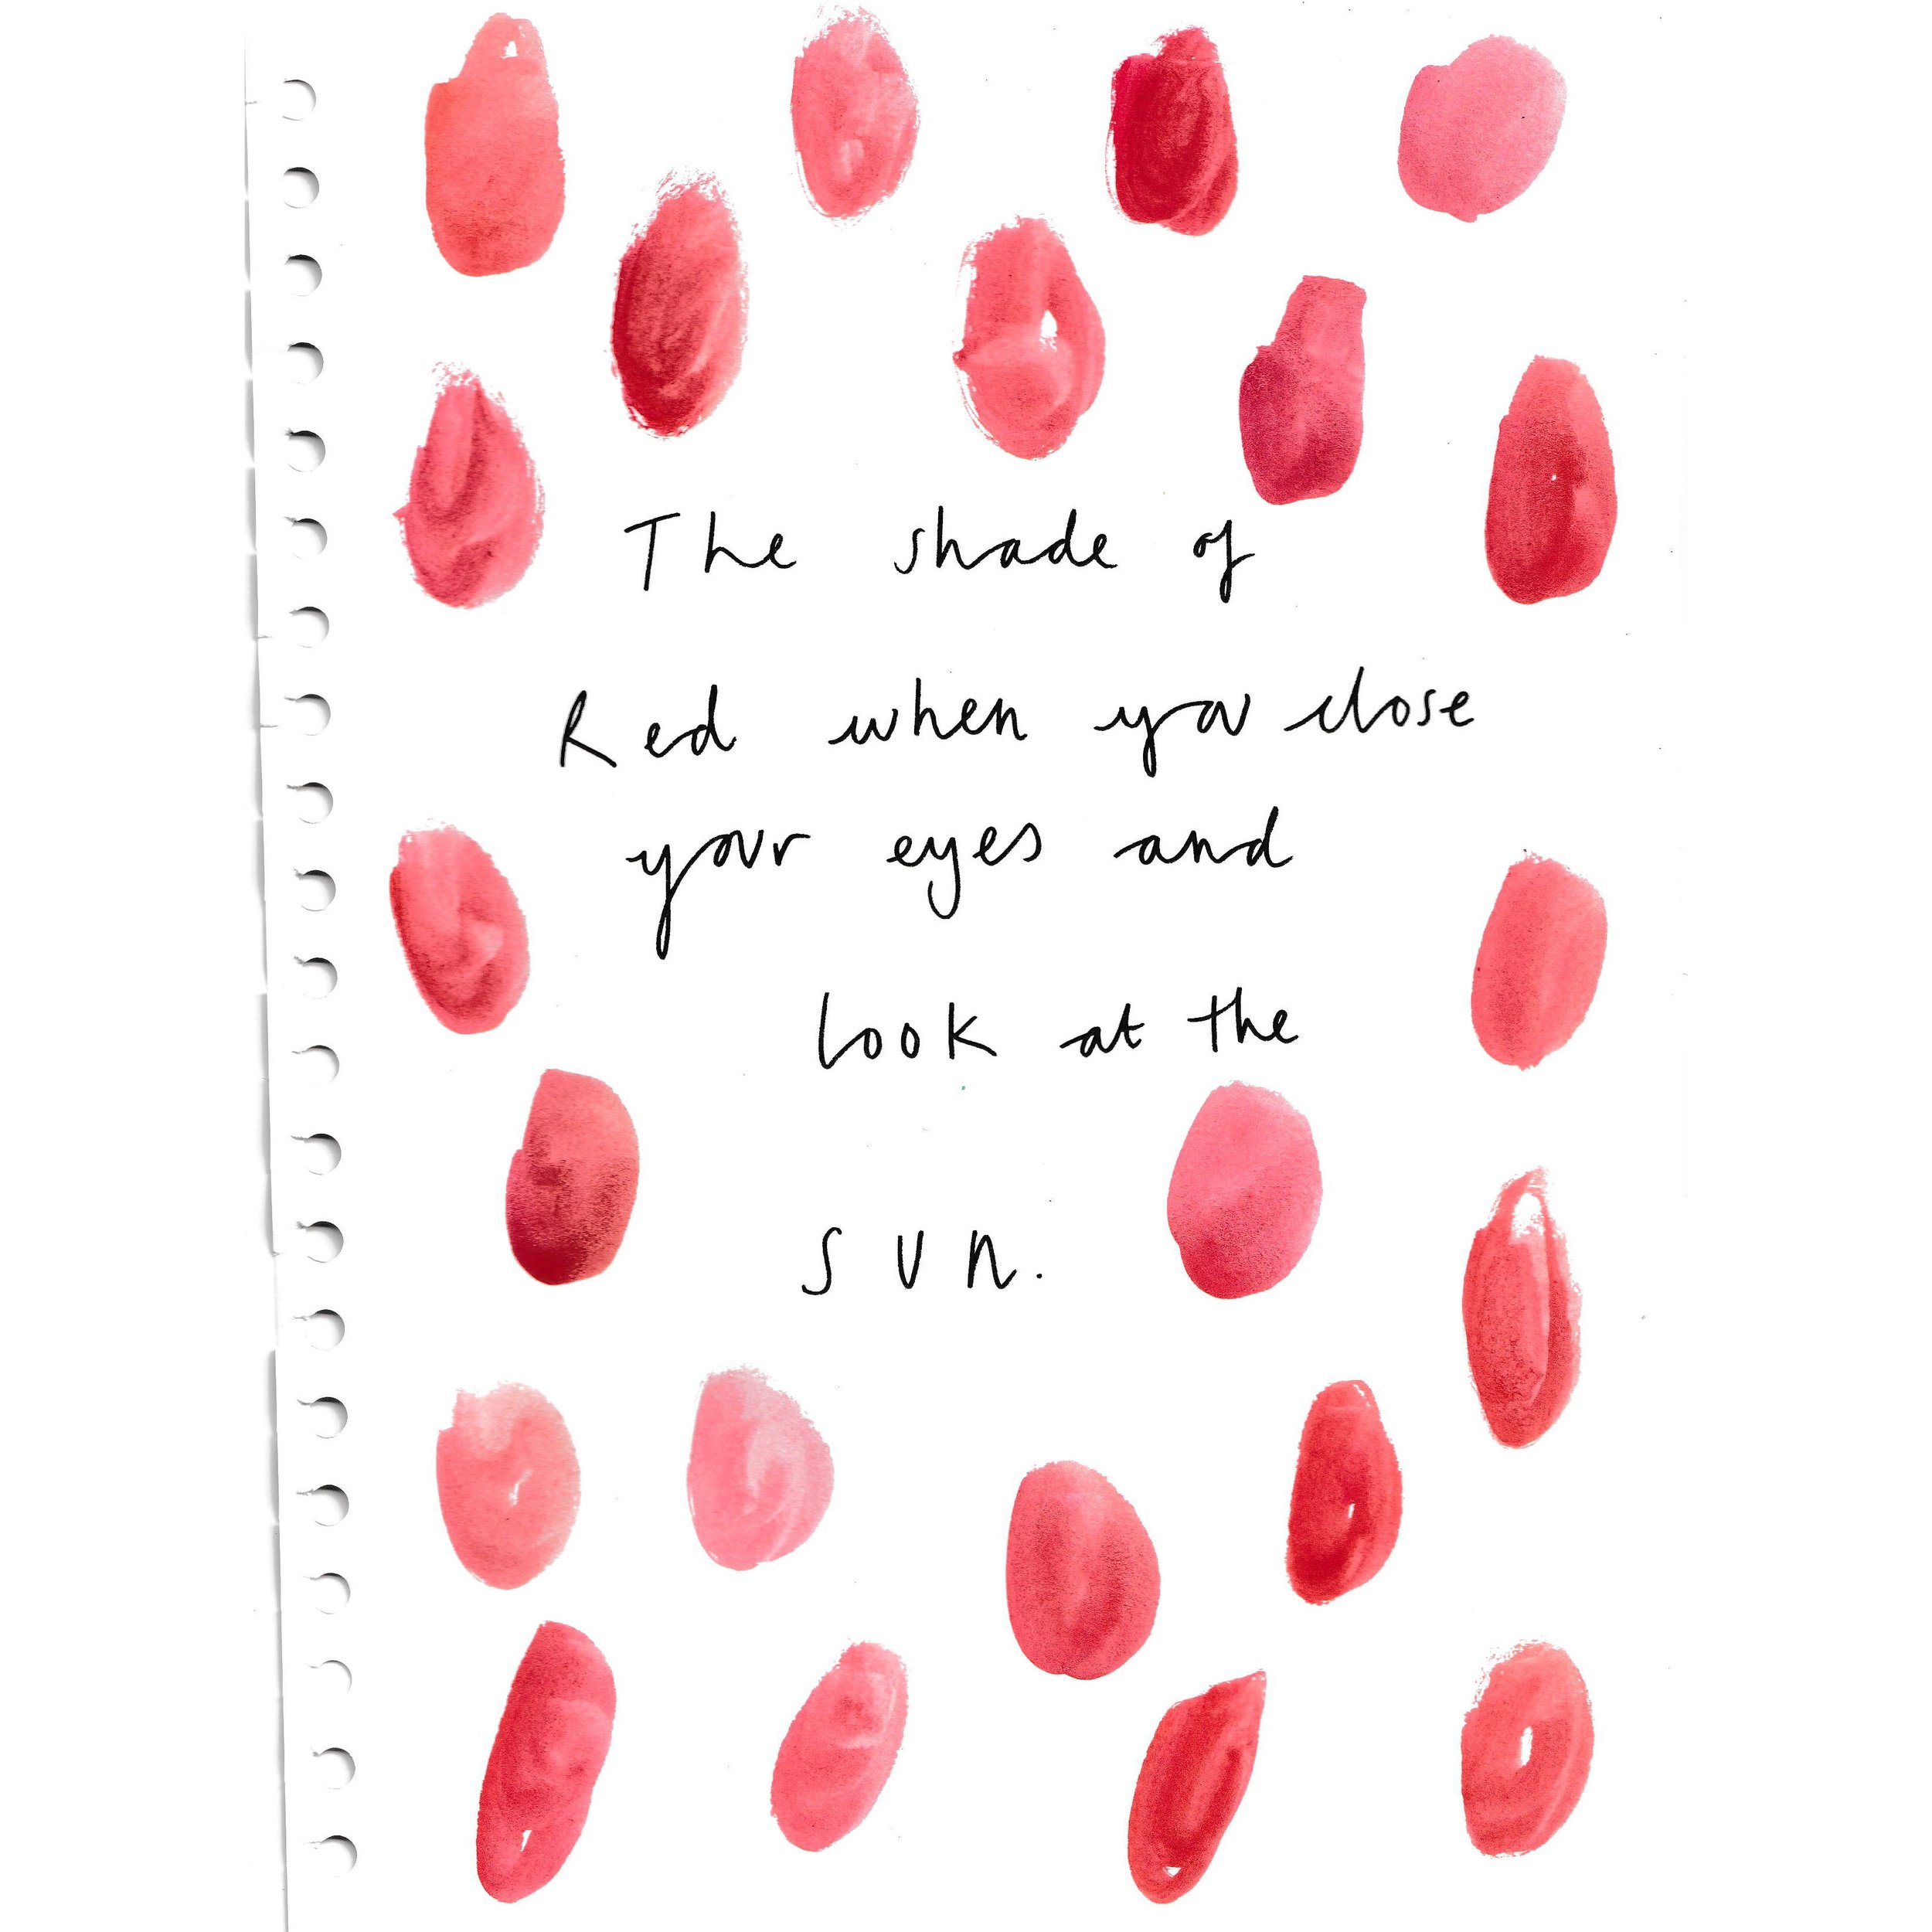 The shade of
Red when you close
your eyes and
look at the
sun.